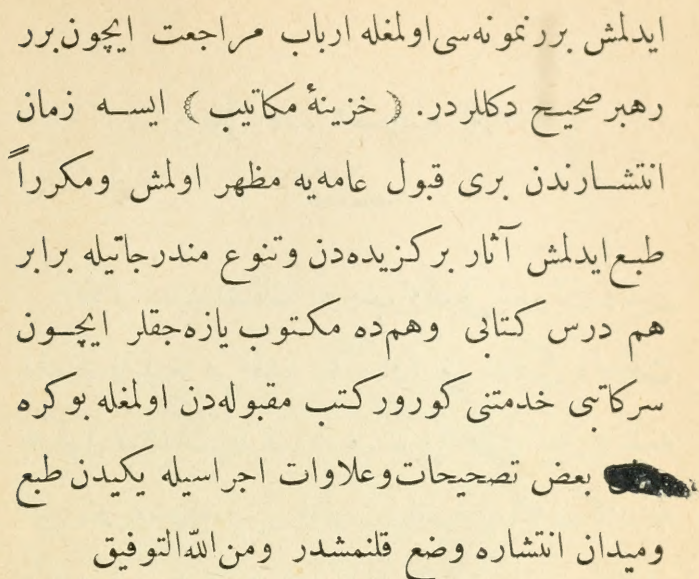 ایدلمش برر نمونه‌سی اولمغله ارباب مراجعت ایچون برر
رهبر صحیح دكللردر. ﴿ خزینهٔ مكاتیب ﴾ ایسه زمان
انتشارندن بری قبول عامه‌یه مظهر اولمش ومكرراً
طبع ایدلمش آثار بركزیده‌دن وتنوع مندرجاتیله برابر
هم درس كتابی وهم‌ده مكتوب یازه‌جقلر ایچون
سركاتبی خدمتنی كورور كتب مقبوله‌دن اولمغله بوكره
بعض تصحیحات وعلاوات اجراسیله یكیدن طبع
ومیدان انتشاره وضع قلنمشدر ومن الله التوفیق